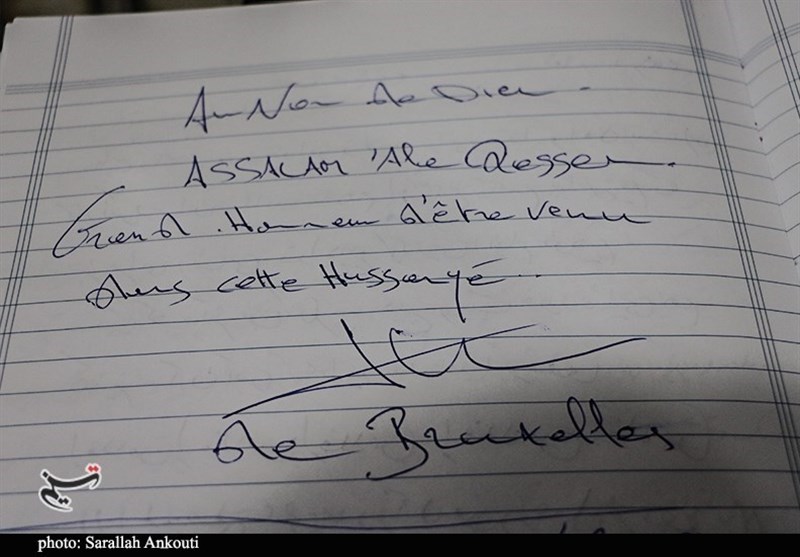 Au Nom de Dieu.
ASSALAM 'Ale Qassem.
Grand Honneur d'être venu
dans cette Hussanyé..
de Bruxelles
تسنیم
photo: Sarallah Ankouti